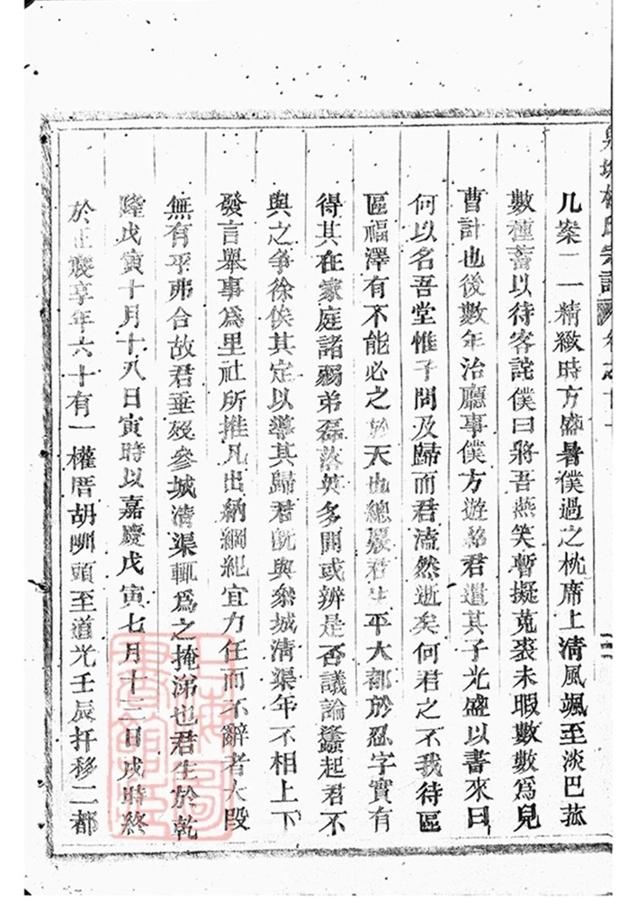 几案一一精緻時方盛暑僕過之枕席上清風颯至淡巴菰
數種蓄以待客詫僕曰將吾燕笑暫擬菟裘未暇數數為兒
曹計也後數年治廳事僕方遊 君遣其子光盛以書來曰
何以名吾堂惟子問及歸而君溘然逝矣何君之不我待區
區福澤有不能必之於天也總覈君生平大都於忍字實有
得其在家庭諸弱弟磊落英多間或辨是否議論蠭起君不
與之爭徐俟其定以導其歸君旣與叅城清渠年不相上下
發言舉事為里社所推凡出納綱紀宜力任而不辭者大段
無有乎弗合故君垂歿參城清渠輒為之掩涕也君生於乾
隆戊寅十月十八日寅時以嘉慶戊寅七月十三日戌時終
於正寢享年六十有一權厝胡 頭至道光壬辰扦移二都
氏宗譜